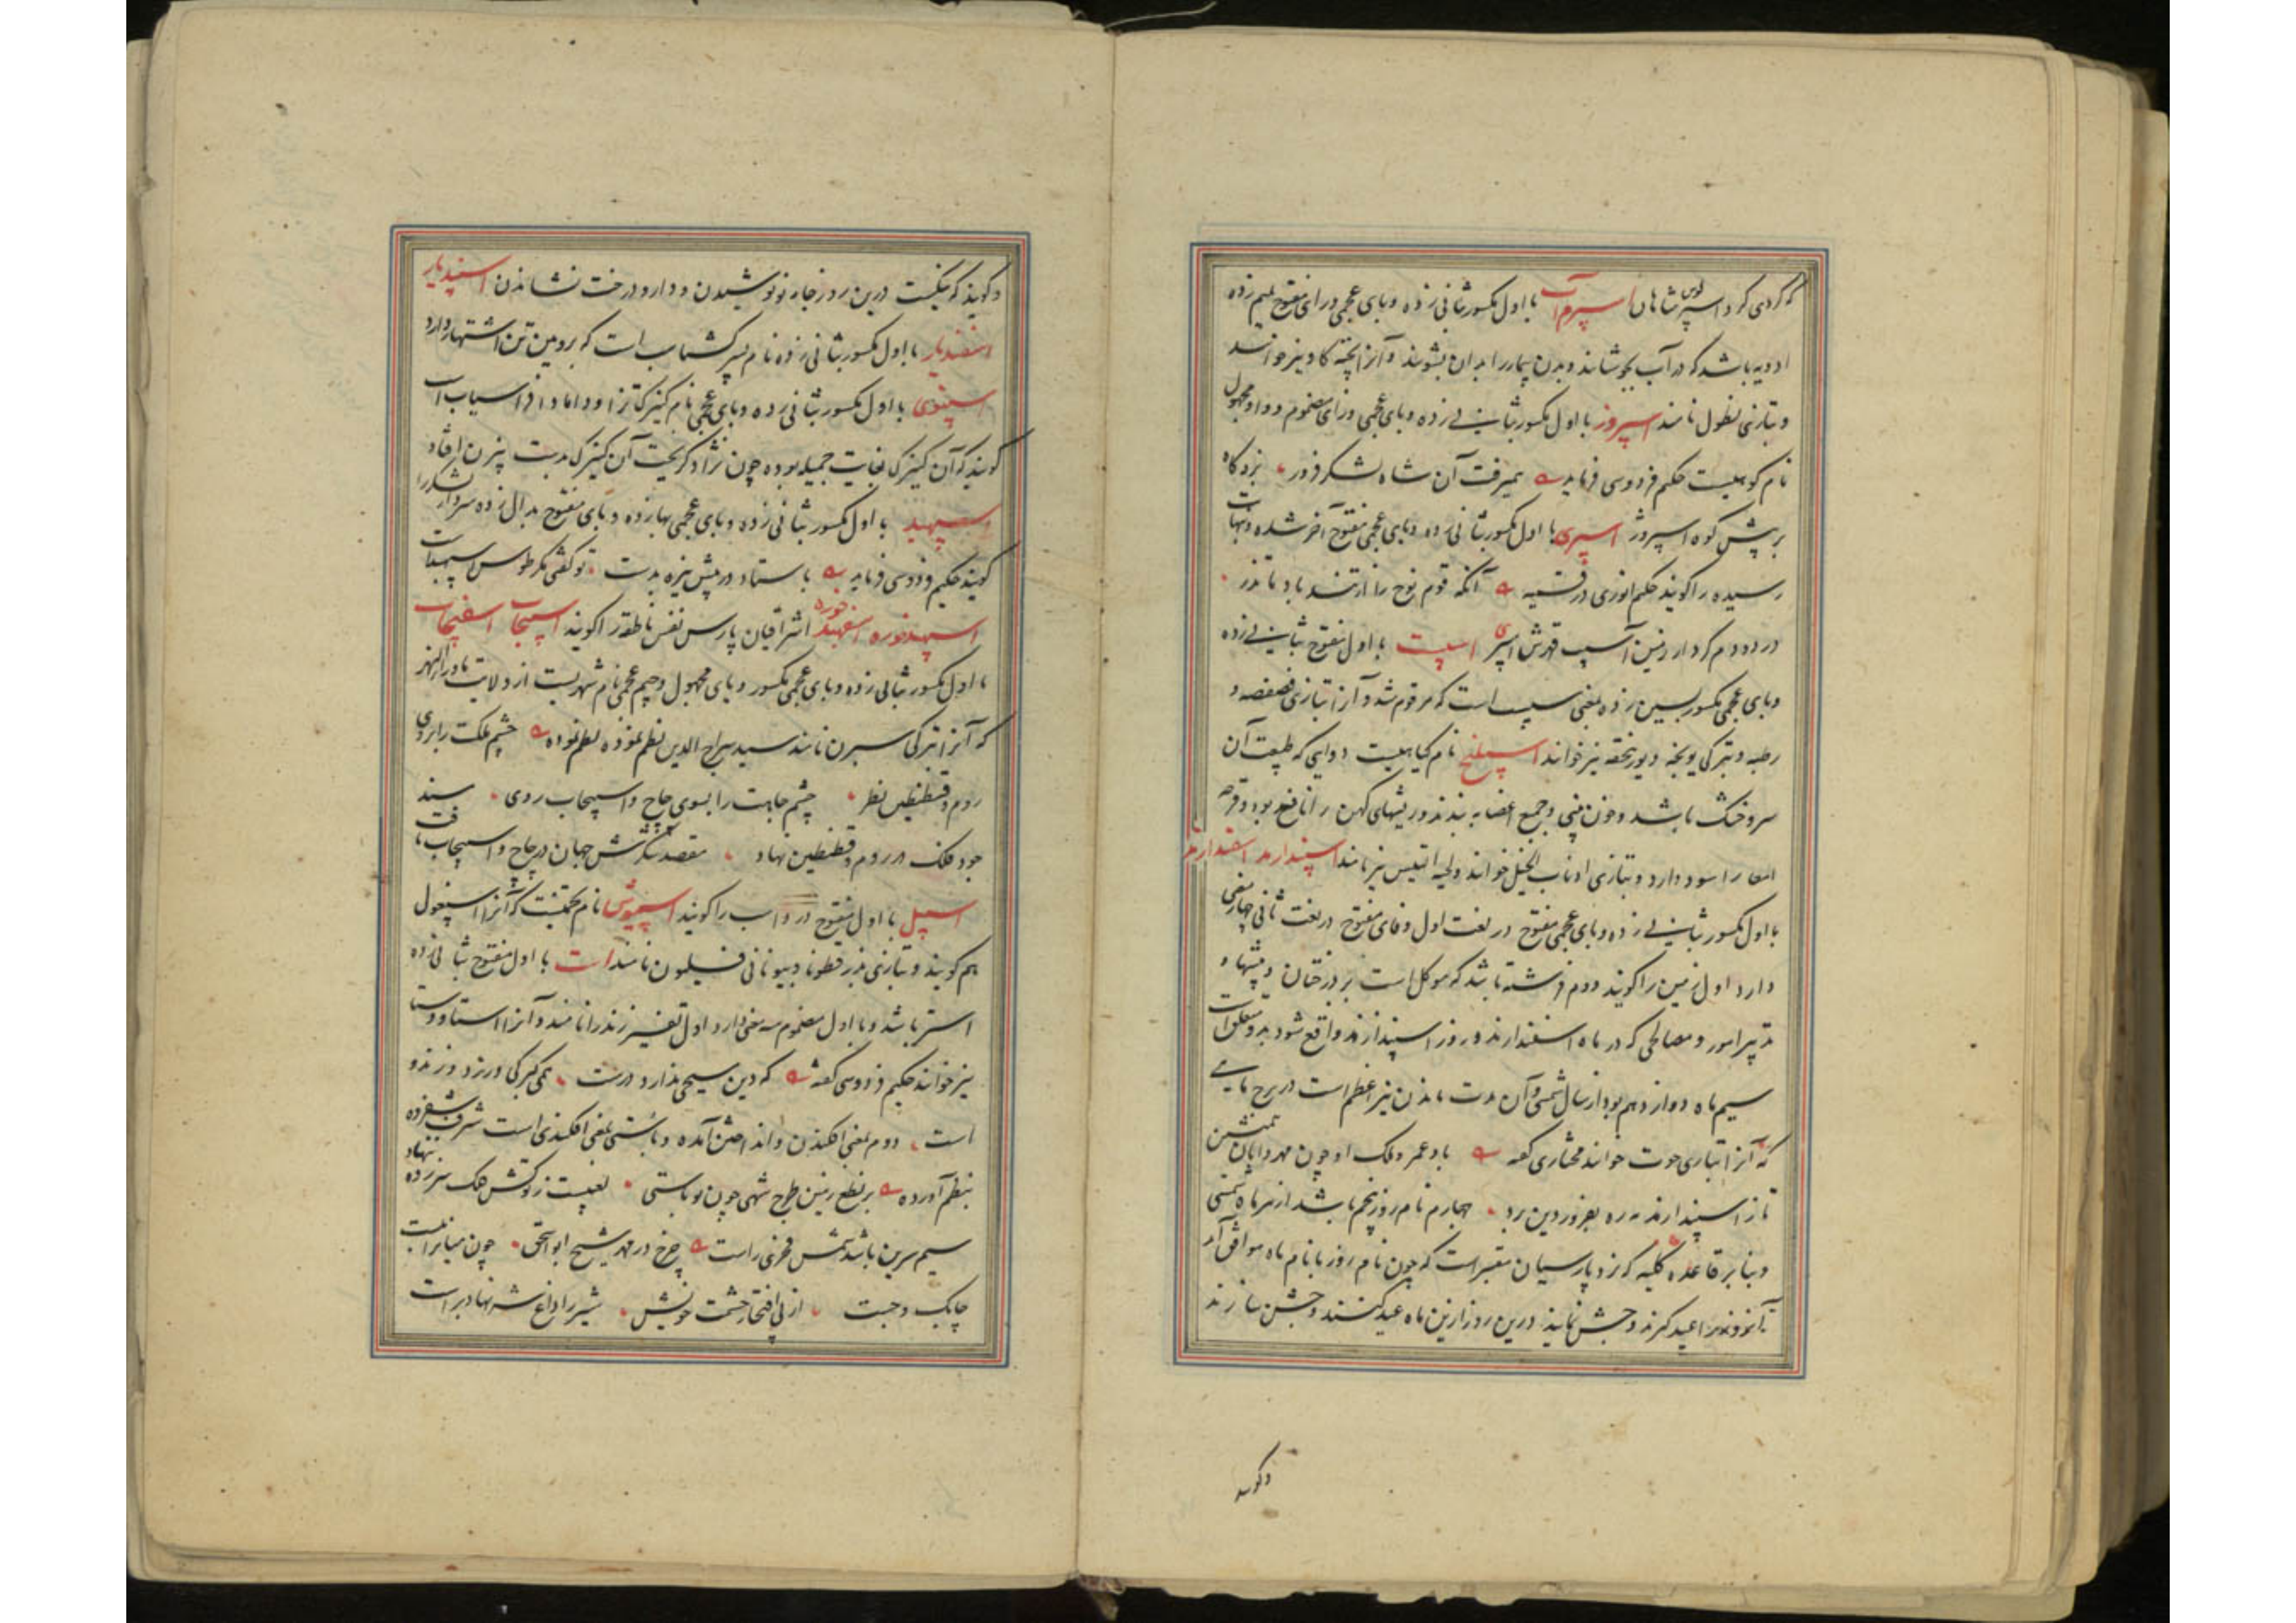 که کردی کرد اسپر شاهان اسپرم آب با اول مکسور بثانی زده و بای عجمی و رای مفتوح بمیم زده
ادویه باشد که در آب بجوشانند و بدن بیمار را بدان بشویند و آنرا پخته کاو نیز خوانند
و بتازی نطول نامند اسپروز با اول مکسور بثانی زده و بای عجمی و رای مضموم و واو مجهول
نام کوهیست حکیم فردوسی فرماید همیرفت آن شاه لشکر فروز بزد گاه
بر پیش کوه اسپروز اسپری با اول مکسور بثانی زده و بای عجمی مفتوح آخر شده و بنهایت
رسیده را گویند حکیم انوری در قسمیه آنکه قوم نوح را از تند باد لاتذر
در دو دم کرد از زمین آسیب قهرش اسپری اسپست با اول مفتوح بثانی زده
و بای عجمی مکسور بسین زده بمعنی سپست است که مرقوم شد و آنرا بتازی فصفصه و
رطبه و بترکی یونجه و یورنجقه نیز خوانند اسپلنج نام گیاهیست دوایی که طبیعت آن
سرد و خشک باشد و خون بینی و جمیع اعضا به بندد و ریشهای کهن را نافع بود و قرحه
امعا را سود دارد و بتازی اذناب الخیل خوانند و لحیة التیس نیز نامند اسپندارمذ اسفندارمذ
با اول مکسور بثانی زده و بای عجمی مفتوح در لغت اول و فای مفتوح در لغت ثانی چهار معنی
دارد اول زمین را گویند دوم فرشته باشد که موکل است بر درختان و بیشها و
تدبیر امور و مصالحی که در ماه اسفندارمذ و روز اسپندارمذ واقع شود بدو متعلق است
سیم ماه دوازدهم بود از سال شمسی و آن مدت ماندن نیر اعظم است در برج ماهی
که آنرا بتازی حوت خوانند مختاری گفته باد عمر و ملک او چون مهر و آبان همنشین
تا ز اسپندارمذ مه ره بفروردین برد چهارم نام روز پنجم باشد از هر ماه شمسی
و بنا بر قاعده کلیه که نزد پارسیان معتبر است که چون نام روز با نام ماه موافق آید
آنروز را عید گیرند و جشن نمایند درین روز ازین ماه عید کنند و جشن سازند
و گویند
و گویند که نیکست درین روز جامه نو پوشیدن و دارو درخت نشاندن اسپندیار
اسفندیار با اول مکسور بثانی زده نام پسر گشتاسب است که بروئین تن اشتهار دارد
اسپنوی با اول مکسور بثانی زده و بای عجمی نام کنیزک تژاو داماد افراسیاب است
گویند که آن کنیزک بغایت جمیله بوده چون تژاو گریخت آن کنیزک بدست بیژن افتاد
اسپهبد با اول مکسور بثانی زده و بای عجمی بها زده و بای مفتوح بدال زده سردار لشکر را
گویند حکیم فردوسی فرماید باستاد در پیش نیزه بدست تو گفتی مگر طوس اسپهبدست
اسپهبد خوره اسفهبد خوره اشراقیان پارس نفس ناطقه را گویند اسپیجاب اسفیجاب
با اول مکسور بثانی زده و بای عجمی مکسور و یای مجهول و جیم عجمی نام شهریست از ولایت ماوراءالنهر
که آنرا بترکی سیرن نامند سید سراج الدین نظم نموده نظم نموده چشم ملکت را بروی
روم و قسطنطین نظر چشم جاهت را بسوی چاچ و اسپیجاب روی سند
جود ملک در روم و قسطنطین نهاد مقصد لشکرکشش جهان در چاچ و اسپیجاب یافت
اسپیل با اول مفتوح در دواب را گویند اسپیوش نام تخمیست که آنرا اسپغول
هم گویند و بتازی بذرقطونا و بیونانی فسیلیون نامند است با اول مفتوح بثانی زده
استر باشد و با اول مضموم سه معنی دارد اول تفسیر زند را نامند و آنرا استا و وستا
نیز خوانند حکیم فردوسی گفته که دین مسیحی ندارد درست همی گبرکی ورزد و زند و
است دوم بمعنی افکندن و انداختن آمده و باستی بمعنی افکندی است شرف شفروه
بنظم آورده بر نطع زمین طرح شهی چون تو باستی لعبیست ز گوشش فلک سر زده نهاد
سیم سرین باشد شمس فخری راست چرخ در عهد شیخ ابو اسحق چون میانراببست
چابک و چست از پی افتخار حشمت خویش شیر را داغ شه نهاد بر است